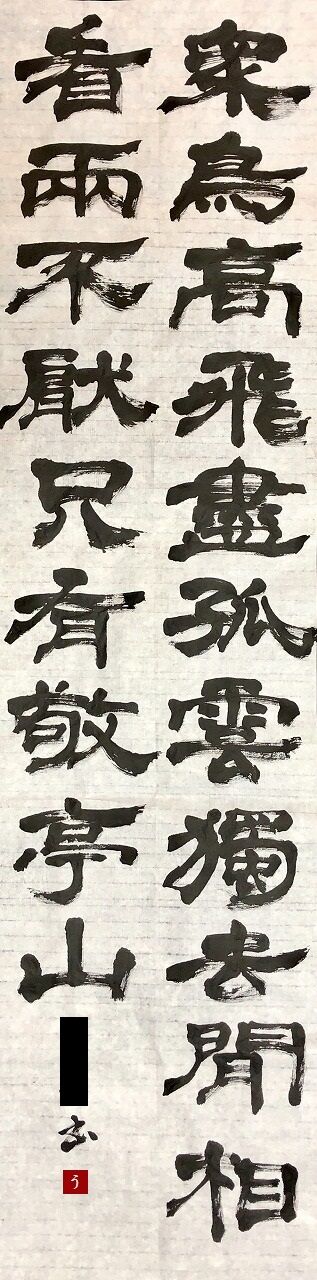 衆鳥高飛盡孤雲獨去閒相
看兩不厭只有敬亭山
書
う